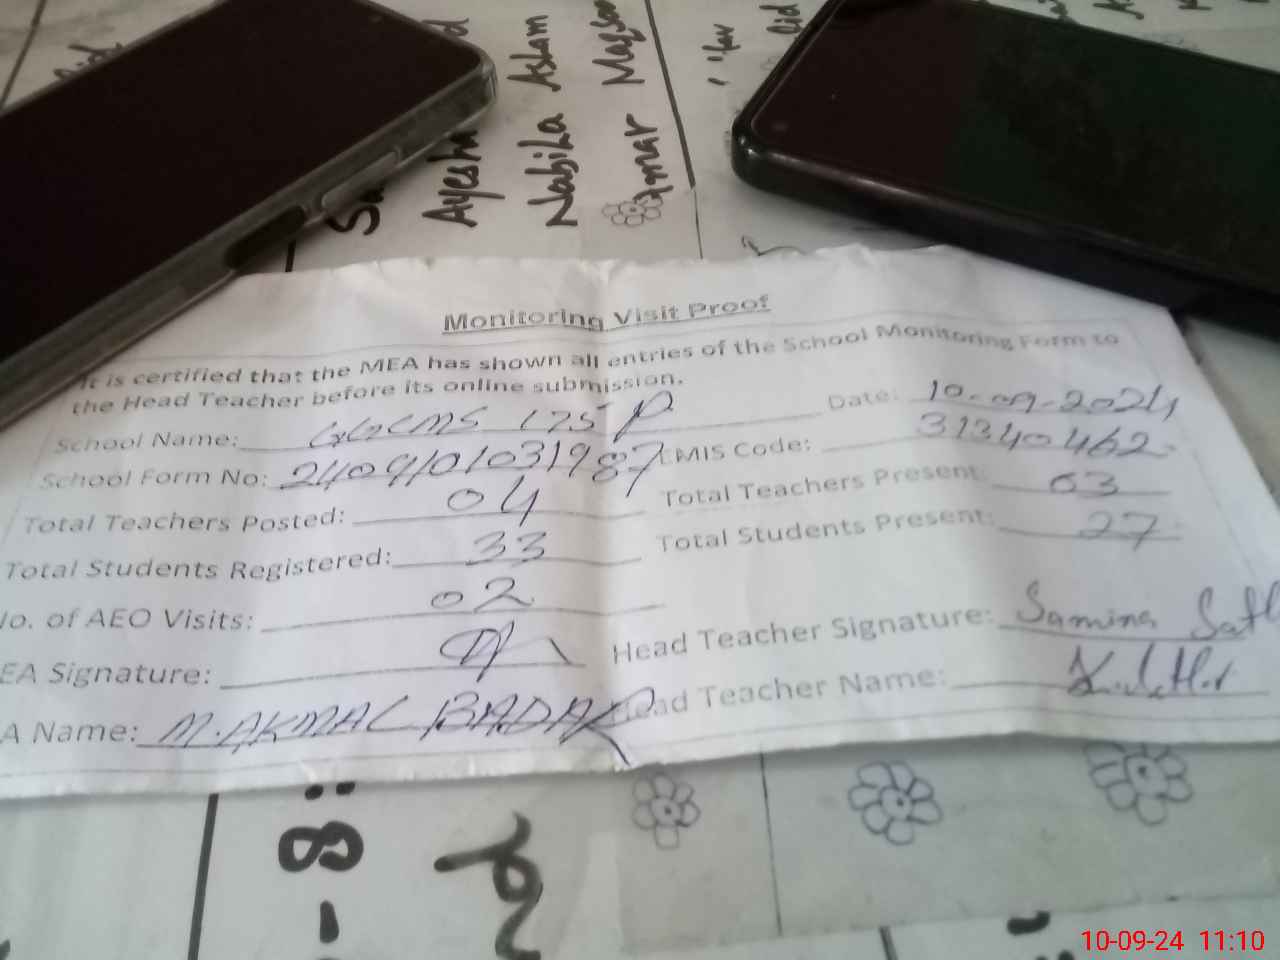 Ayesha
Nabila Aslam
Amar
Monitoring Visit Proof
It is certified that the MEA has shown all entries of the School Monitoring Form to
the Head Teacher before its online submission.
School Name: GGCMS 175 P Date: 10-09-2024
School Form No: 2409101031987 EMIS Code: 31340462
Total Teachers Posted: 04 Total Teachers Present: 03
Total Students Registered: 33 Total Students Present: 27
No. of AEO Visits: 02
EA Signature: Head Teacher Signature: Samina
A Name: M. AKMAL BADAR Head Teacher Name:
- 8:
10-09-24 11:10